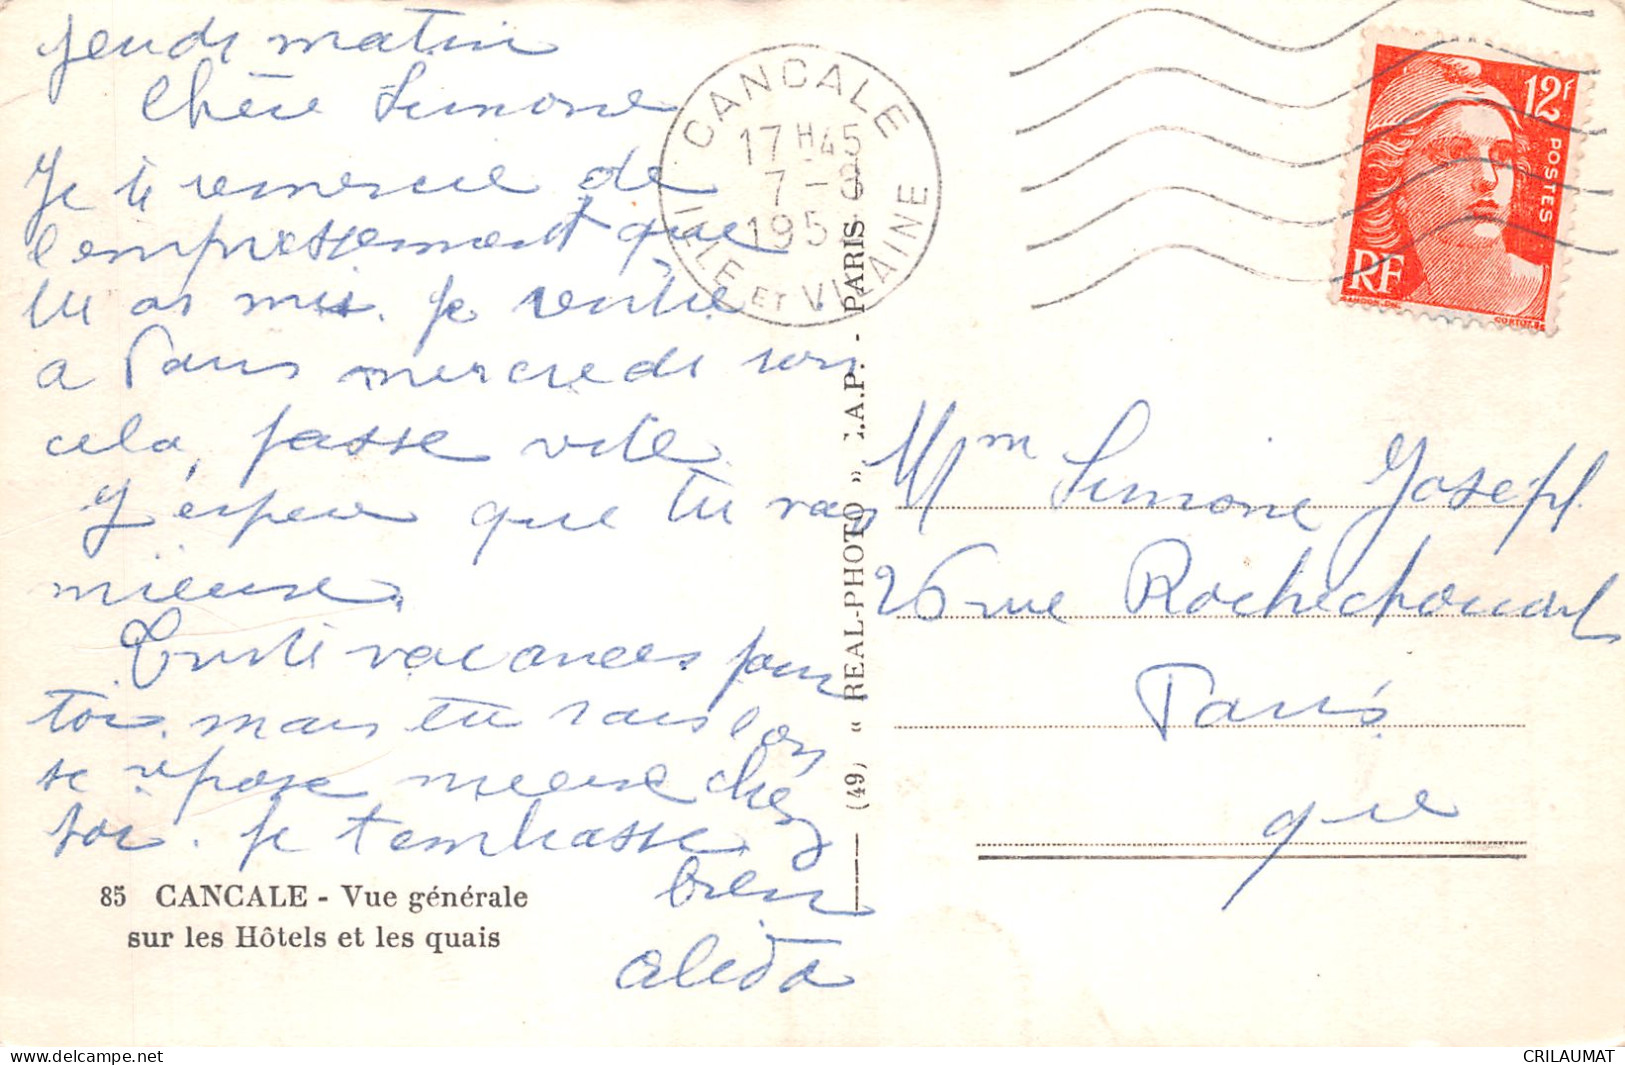 jeudi matin
Chère Simone
Je te remercie de
l'empressement que
tu as mis. Je rentre
a Paris mercredi soir
cela, passe vite
J'espere que tu vas
mieux.
Triste vacances pour
toi. mais tu sais l'on
se repose mieux chez
toi. Je t'embrasse
bien
alida
85 CANCALE - Vue générale
sur les Hôtels et les quais
(49) « REAL-PHOTO » .A.P. - PARIS
CANCALE
17 H 45
7 - 8
195
ILLE ET VILAINE
12F
POSTES
RF
GANDON
CORTOT
Mm Simone Joseph
26 rue Rochechouart
Paris
9me
delcampe.net
CRILAUMAT